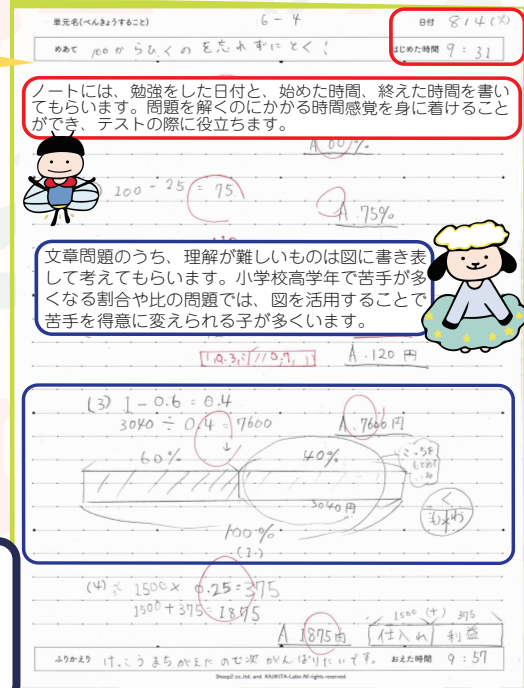 単元名(べんきょうすること)
6-4
日付 8/4(火)
めあて 100からひくのを忘れずにとく!
はじめた時間 9:31
ノートには、勉強をした日付と、始めた時間、終えた時間を書い
てもらいます。問題を解くのにかかる時間感覚を身に着けること
ができ、テストの際に役立ちます。
100-25=75
A.75%
文章問題のうち、理解が難しいものは図に書き表
して考えてもらいます。小学校高学年で苦手が多
くなる割合や比の問題では、図を活用することで
苦手を得意に変えられる子が多くいます。
A.120円
(3) 1-0.6=0.4
3040÷0.4=7600
A.7600円
60%
40%
3040円
100%
(1.)
く
も×わ
(4) 1500×0.25=375
1500+375=1875
1500 (+) 375
A 1875円
仕入れ 利益
ふりかえり けっこうまちがえたので次がんばりたいです。
おえた時間 9:57
Sheep2 co.,ltd. and KAJIKITA-Labo All rights reserved.